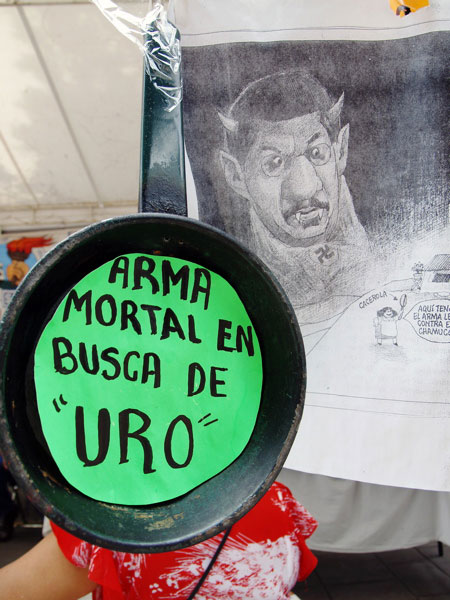 ARMA
MORTAL EN
BUSCA DE
"URO"
CACEROLA
AQUÍ TEN
EL ARMA LE
CONTRA E
CHAMUC